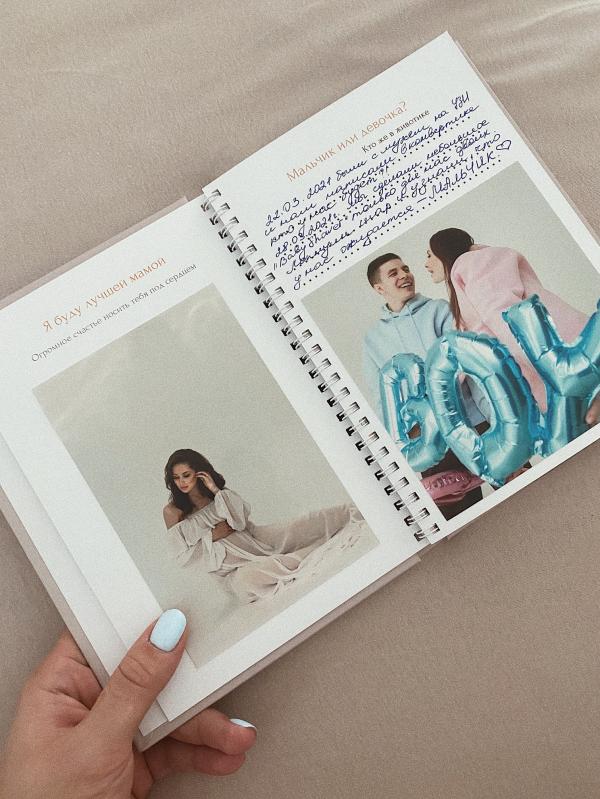 Я буду лучшей мамой
Огромное счастье носить тебя под сердцем
Мальчик или девочка?
Кто же в животике
22.03.2021 были с мужем на УЗИ
и нам написали в конвертике
кто у нас будет!
28.03.2021. Мы сделали небольшое
"Baby Shower" только для нас двоих
Лопнули шар и узнали, что
у нас ожидается – МАЛЬЧИК ♡
BOY